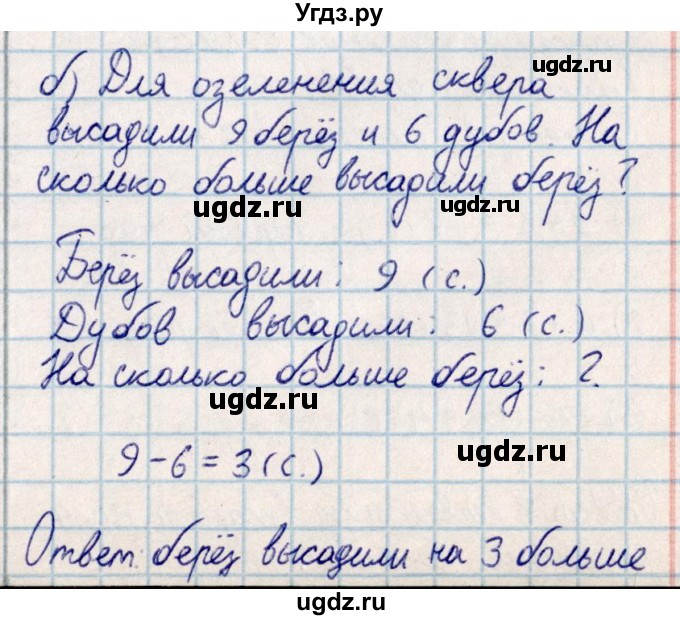 Угдз.ру
ugdz.ru
б) Для озеленения сквера
высадили 9 берёз и 6 дубов. На
сколько больше высадили берёз?
ugdz.ru ugdz.ru
Берёз высадили: 9 (с.)
Дубов высадили: 6 (с.)
На сколько больше берёз: ?.
ugdz.ru
9-6=3(с.)
ugdz.ru
Ответ: берёз высадили на 3 больше
ugdz.ru